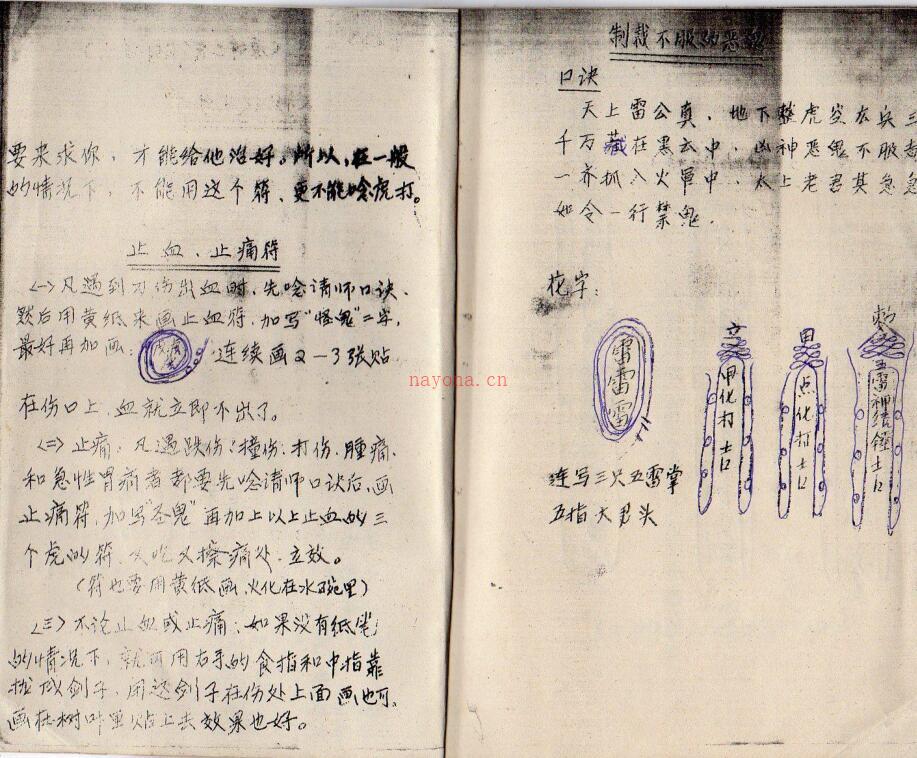 要来求你，才能给他治好。所以，在一般
的情况下，不能用这个符，更不能唸虎打。
止血、止痛符
<一>凡遇到刀伤出血时，先唸请师口诀，
然后用黄纸来画止血符，加写“怪鬼”二字，
最好再加画：连续画2-3张贴
在伤口上，血就立即不出了。
<二>止痛，凡遇跌伤；撞伤，打伤，腫痛，
和急性胃病者都要先唸请师口诀后，画
止痛符，加写“圣鬼”再加上以上止血的三
个虎的符，又吃又擦痛处，立效。
（符也要用黄纸画，火化在水碗里）
<三>不论止血或止痛，如果没有纸笔
的情况下，就可用右手的食指和中指靠
拢成剑子，用这剑子在伤处上面画也可，
画在树叶里贴上去效果也好。
制裁不服的恶
口诀
天上雷公真，地下整虎
千万藏在黑云中，凶神恶鬼不服者
一齐抓入火軍中，太上老君其急急
如令一行禁鬼．
花字：
雷雷雷
甲化打
点化打
敕
五雷神
连写三只五雷掌
五指大君头
nayona.cn